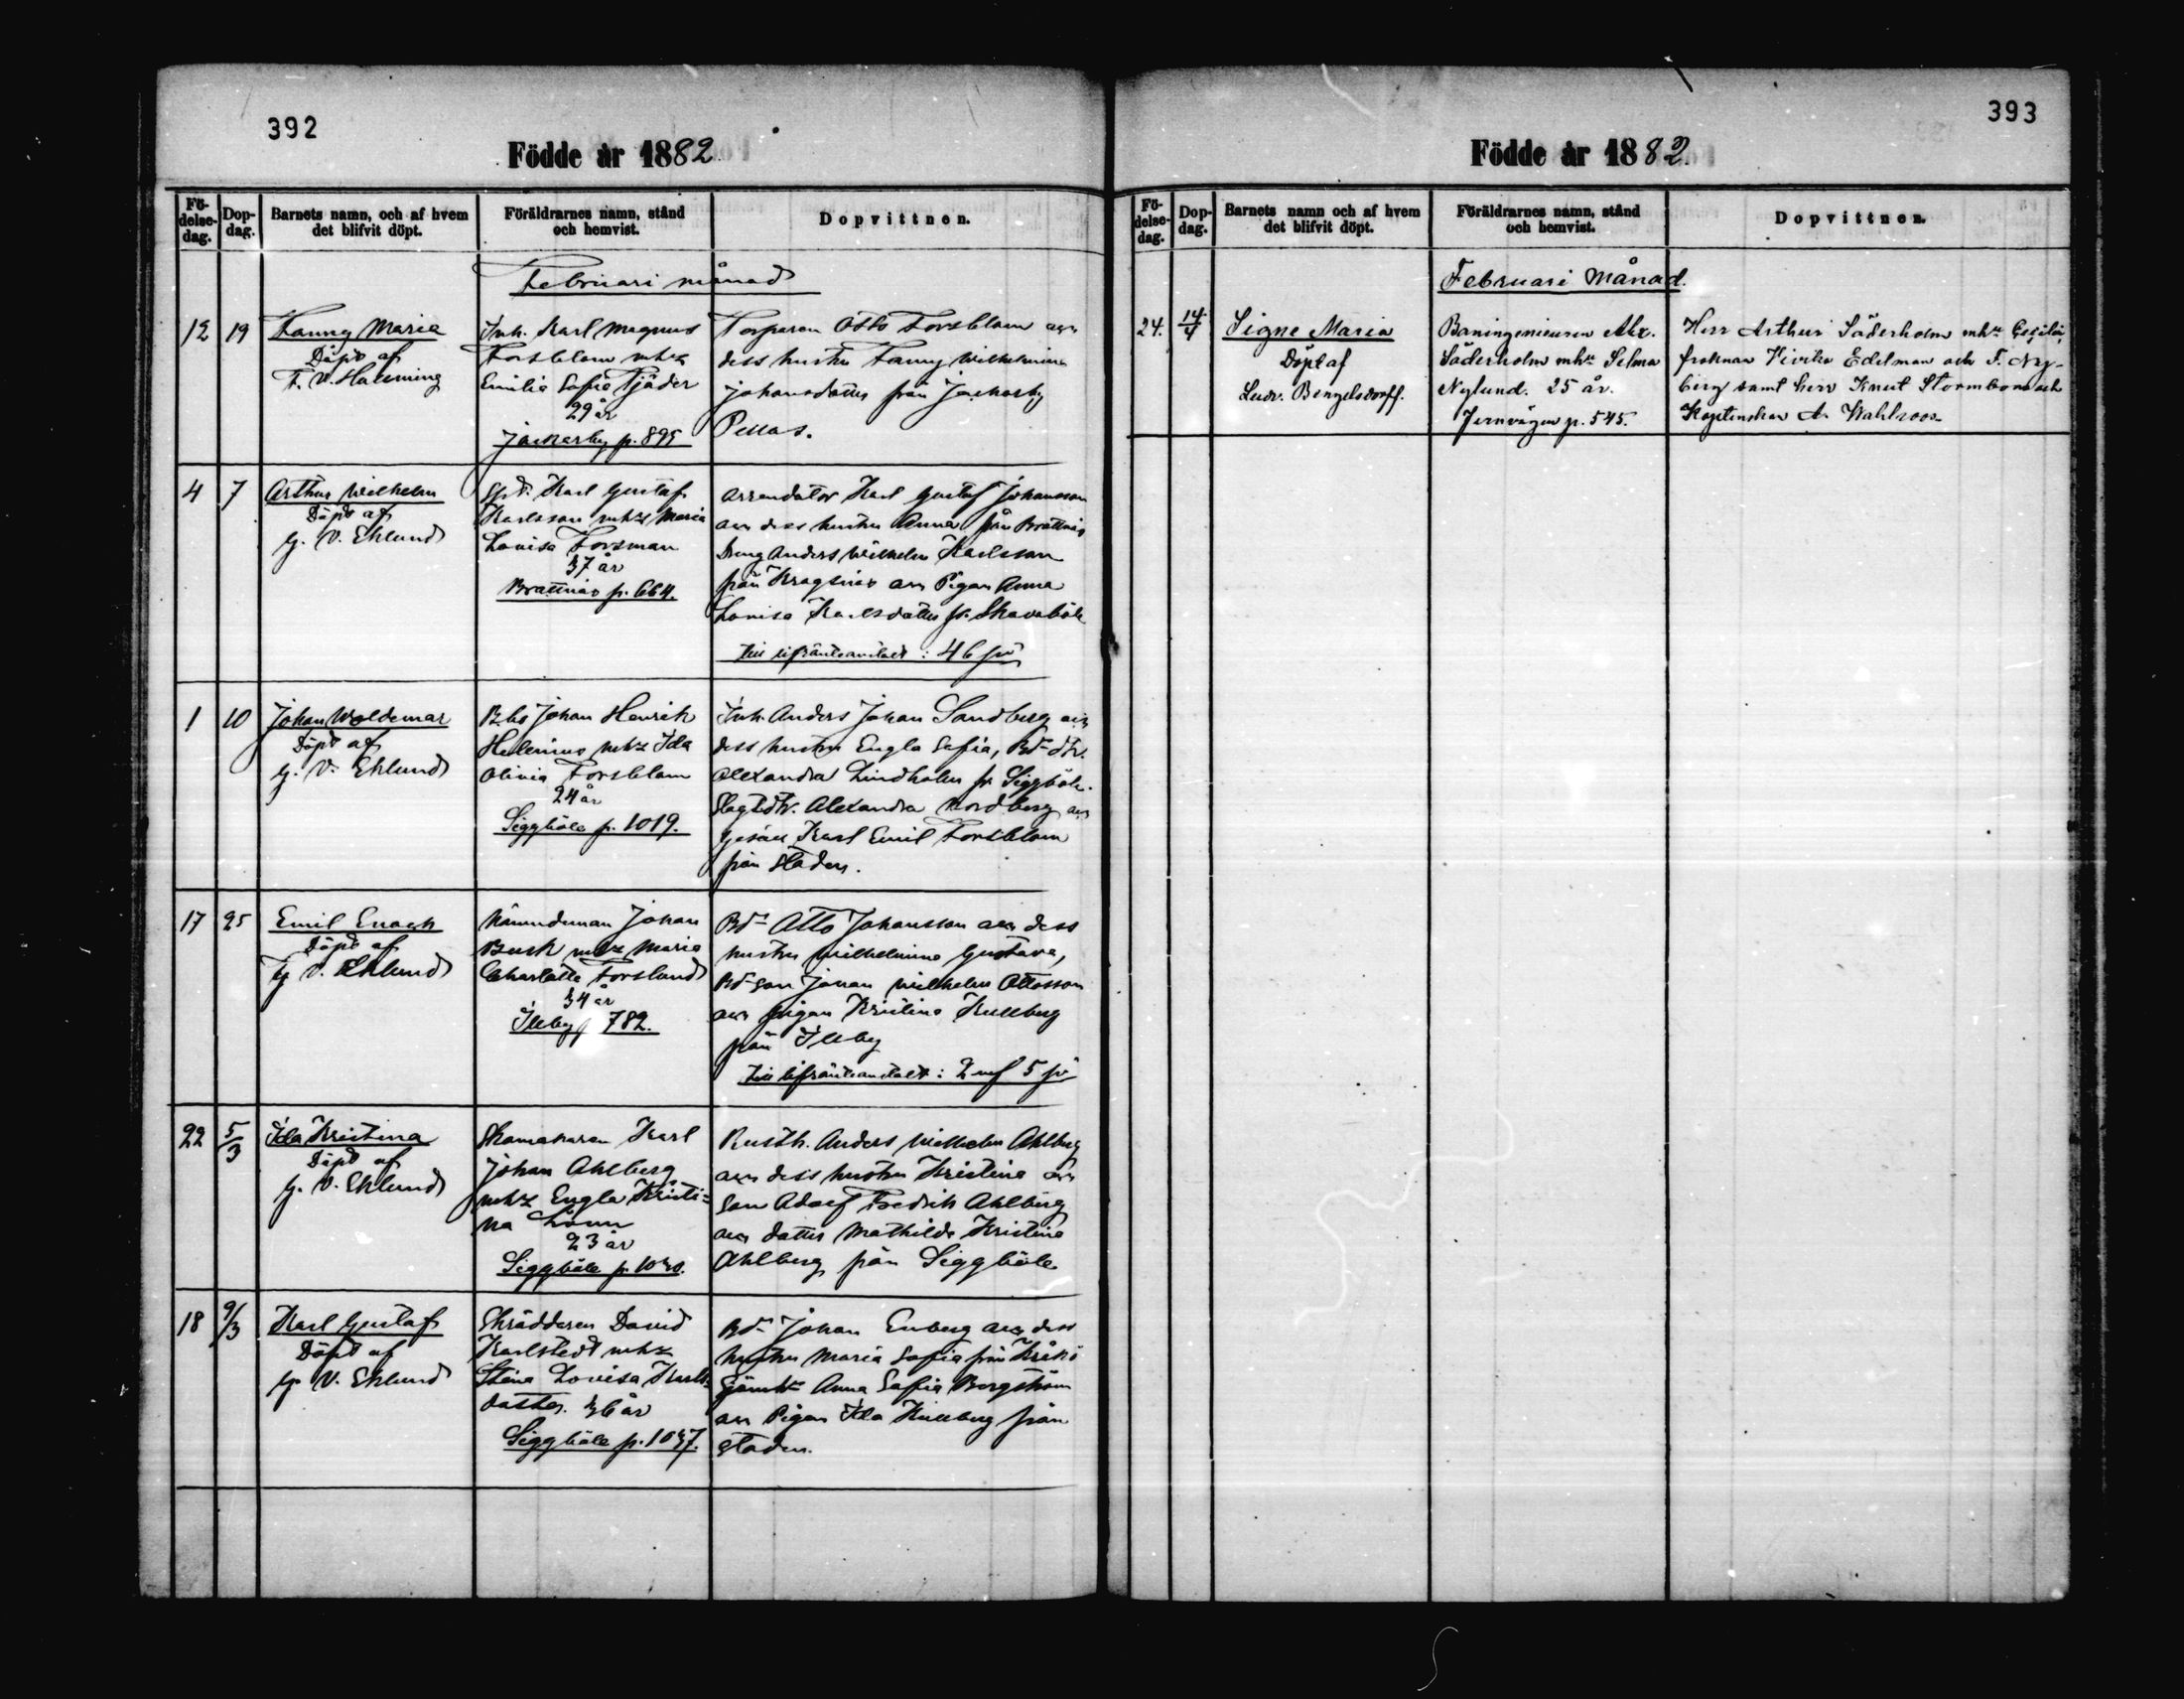 392
Födde år 1882
Fö-
delse-
dag.
Dop-
dag.
Barnets namn, och af hvem
det blifvit döpt.
Föräldrarnes namn, stånd
och hemvist.
Dopvittnen.
Februari månad
12 19
Fanny Maria
Döpt af
F. W.
Inh. Karl Magnus
Forsblom mhz
Emilia Sofia Tjäder
29 år
Jackarby p. 895
Torparen Otto Forsblom
dess hustru Fanny Wilhelmina
Johansdotter från Jackarby
Pellas.
4 7
Arthur Wilhelm
Döpt af
G. V. Ehlund
Karl Gustaf
Karlsson mhz Maria
Lovisa Forsman
37 år
Brattnäs p. 664.
Arrendator Karl Gustaf Johansson
dess hustru Anna från Brattnäs
Dreng Anders Wilhelm Karlsson
från Kragsnäs Pigan Anna
Lovisa Karlsdotter fr.
Till lifränteanstalt: 46 pi
1 10
Johan Woldemar
Döpt af
G. V. Ehlund
Johan Henrik
Helenius mhz Ida
Olivia Forsblom
24 år
Siggböle p. 1019.
Inh. Anders Johan Sandberg
dess hustru Engla Sofia, Bd dtr.
Alexandra Lindholm fr. Siggböle.
Alexandra Nordberg
Karl Emil Forsblom
från staden.
17 25
Emil Enoch
Döpt af
G V. Ehlund
Nämndeman Johan
Busk mhz Maria
Charlotta Forslund
34 år
Illby p 782.
Bd Otto Johansson dess
hustru Wilhelmina Gustava,
Bd son Johan Wilhelm Ottosson
pigan Kristina Kullberg
från Illby
Till lifränteanstalt: 2 mf 5 pi
22 5/3
Ida Kristina
Döpt af
G. V. Ehlund
Skomakaren Karl
Johan Ahlberg
mhz Engla Kristi=
na
23 år
Siggböle p.
Rusth. Anders Wilhelm Ahlberg
dess hustru Kristina
son Adolf Fredrik Ahlberg
dotter Mathilda Kristina
Ahlberg från Siggböle
18 9/3
Karl Gustaf
Döpt af
G V. Ehlund
Skräddaren David
Karlstedt mhz
Stina Lovisa Karls-
dotter. 36 år
Siggböle p. 1037.
Bd Johan Enberg dess
hustru Maria Sofia från Kråkö
Anna Sofia Bergström
Pigan Ida Kullberg från
staden.
393
Födde år 1882.
Fö-
delse-
dag.
Dop-
dag.
Barnets namn och af hvem
det blifvit döpt.
Föräldrarnes namn, stånd
och hemvist.
Dopvittnen.
Februari Månad.
24. 14/4
Signe Maria
Döpt af
Ludv. Bengelsdorff.
Baningenieuren Alex.
Söderholm mhu Selma
Nylund. 25 år.
Jernvägen p. 545.
Herr Arthur Söderholm mhu Cecilia,
fröknar Edelman och F. Ny-
berg samt herr Knut Stormbom och
A. Wahlroos